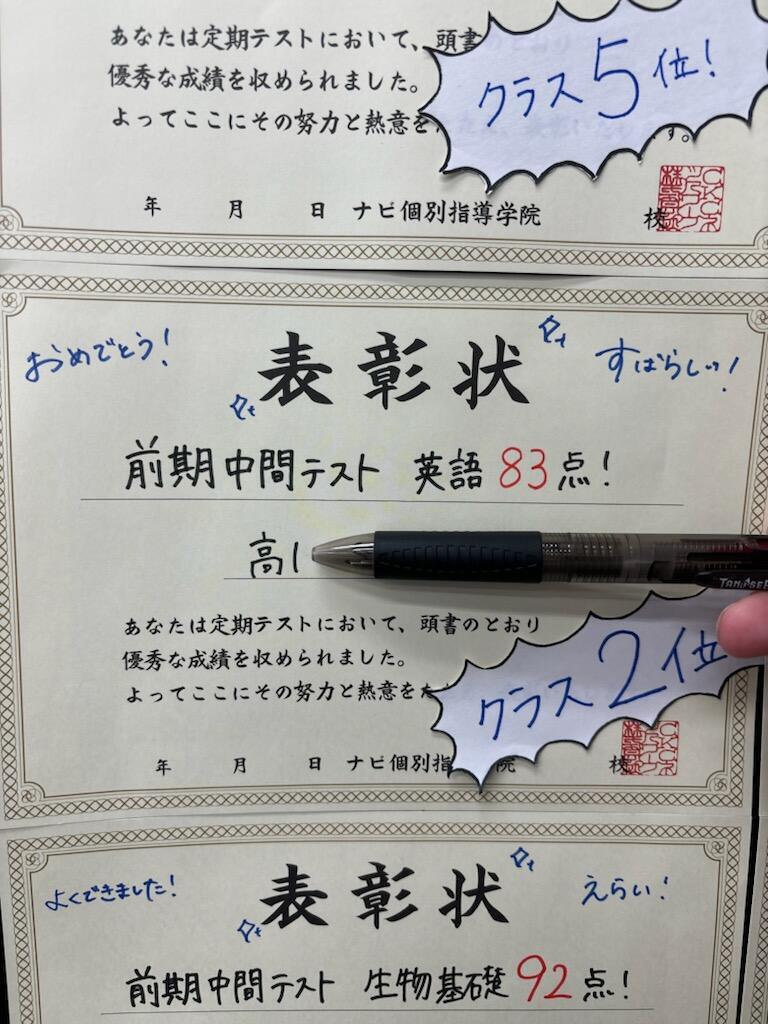 あなたは定期テストにおいて、頭書のとおり
優秀な成績を収められました。
よってここにその努力と熱意を
クラス5位!
年 月 日 ナビ個別指導学院 校
おめでとう!
表彰状
すばらしい!
前期中間テスト 英語 83点!
高1
TANISE
あなたは定期テストにおいて、頭書のとおり
優秀な成績を収められました。
よってここにその努力と熱意をた
クラス2位
年 月 日 ナビ個別指 院 校
よくできました!
表彰状
えらい!
前期中間テスト 生物基礎 92点!